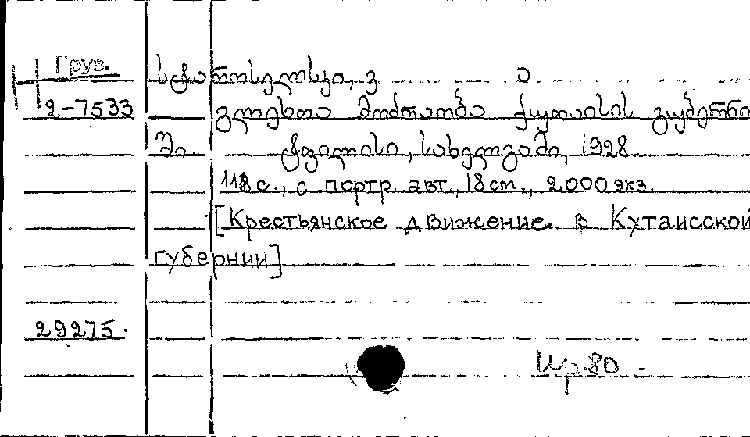 Груз.
სტაროსელსკი, ვ. ა
2-7533 გლეხთა მოძრაობა ქუთაისის გუბერნია
ში ტფილისი, სახელგამი, 1928
118 с., с портр. авт., 18 см., 2.000 экз.
[Крестьянское движение в Кутаисской
губернии]
29275.